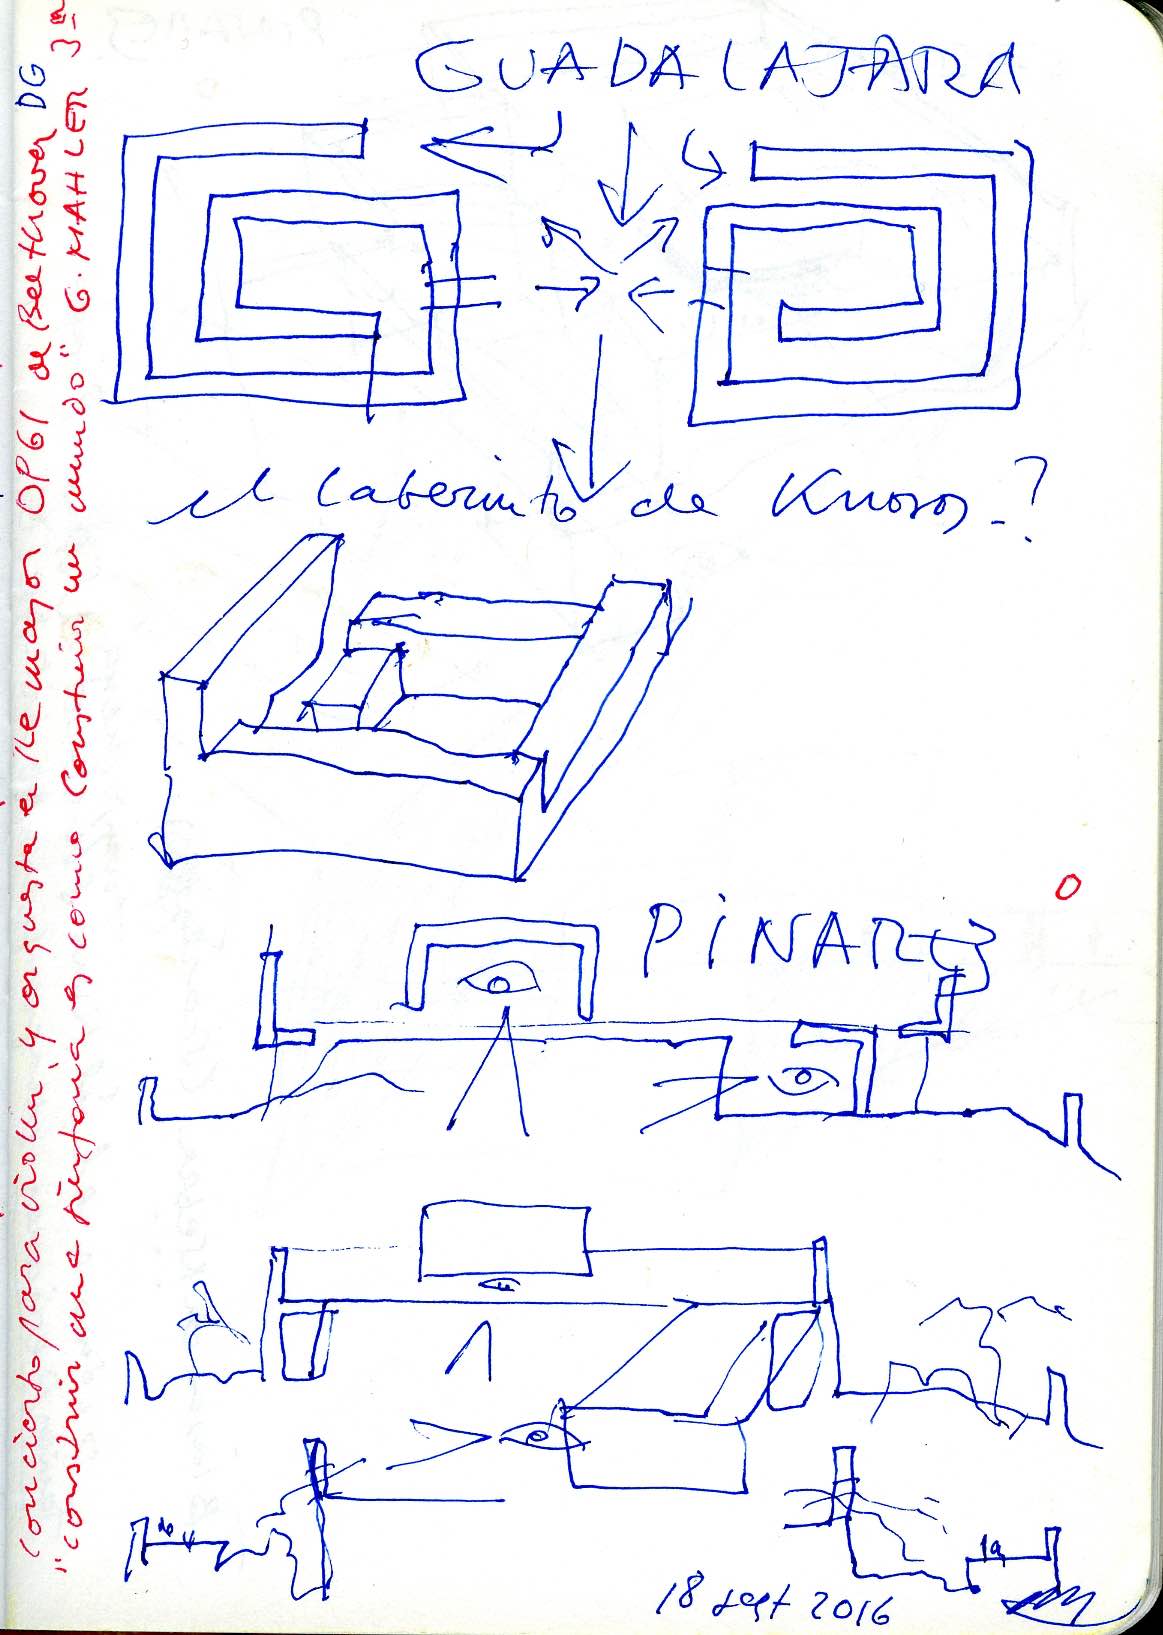 GUADALAJARA
el laberinto de Knosos.?
PINAR
18 sept 2016
concierto para violin y orquesta en Re mayor OP61 de Beethoven DG
"construir una sinfonia es como construir un mundo" G. MAHLER 3ª